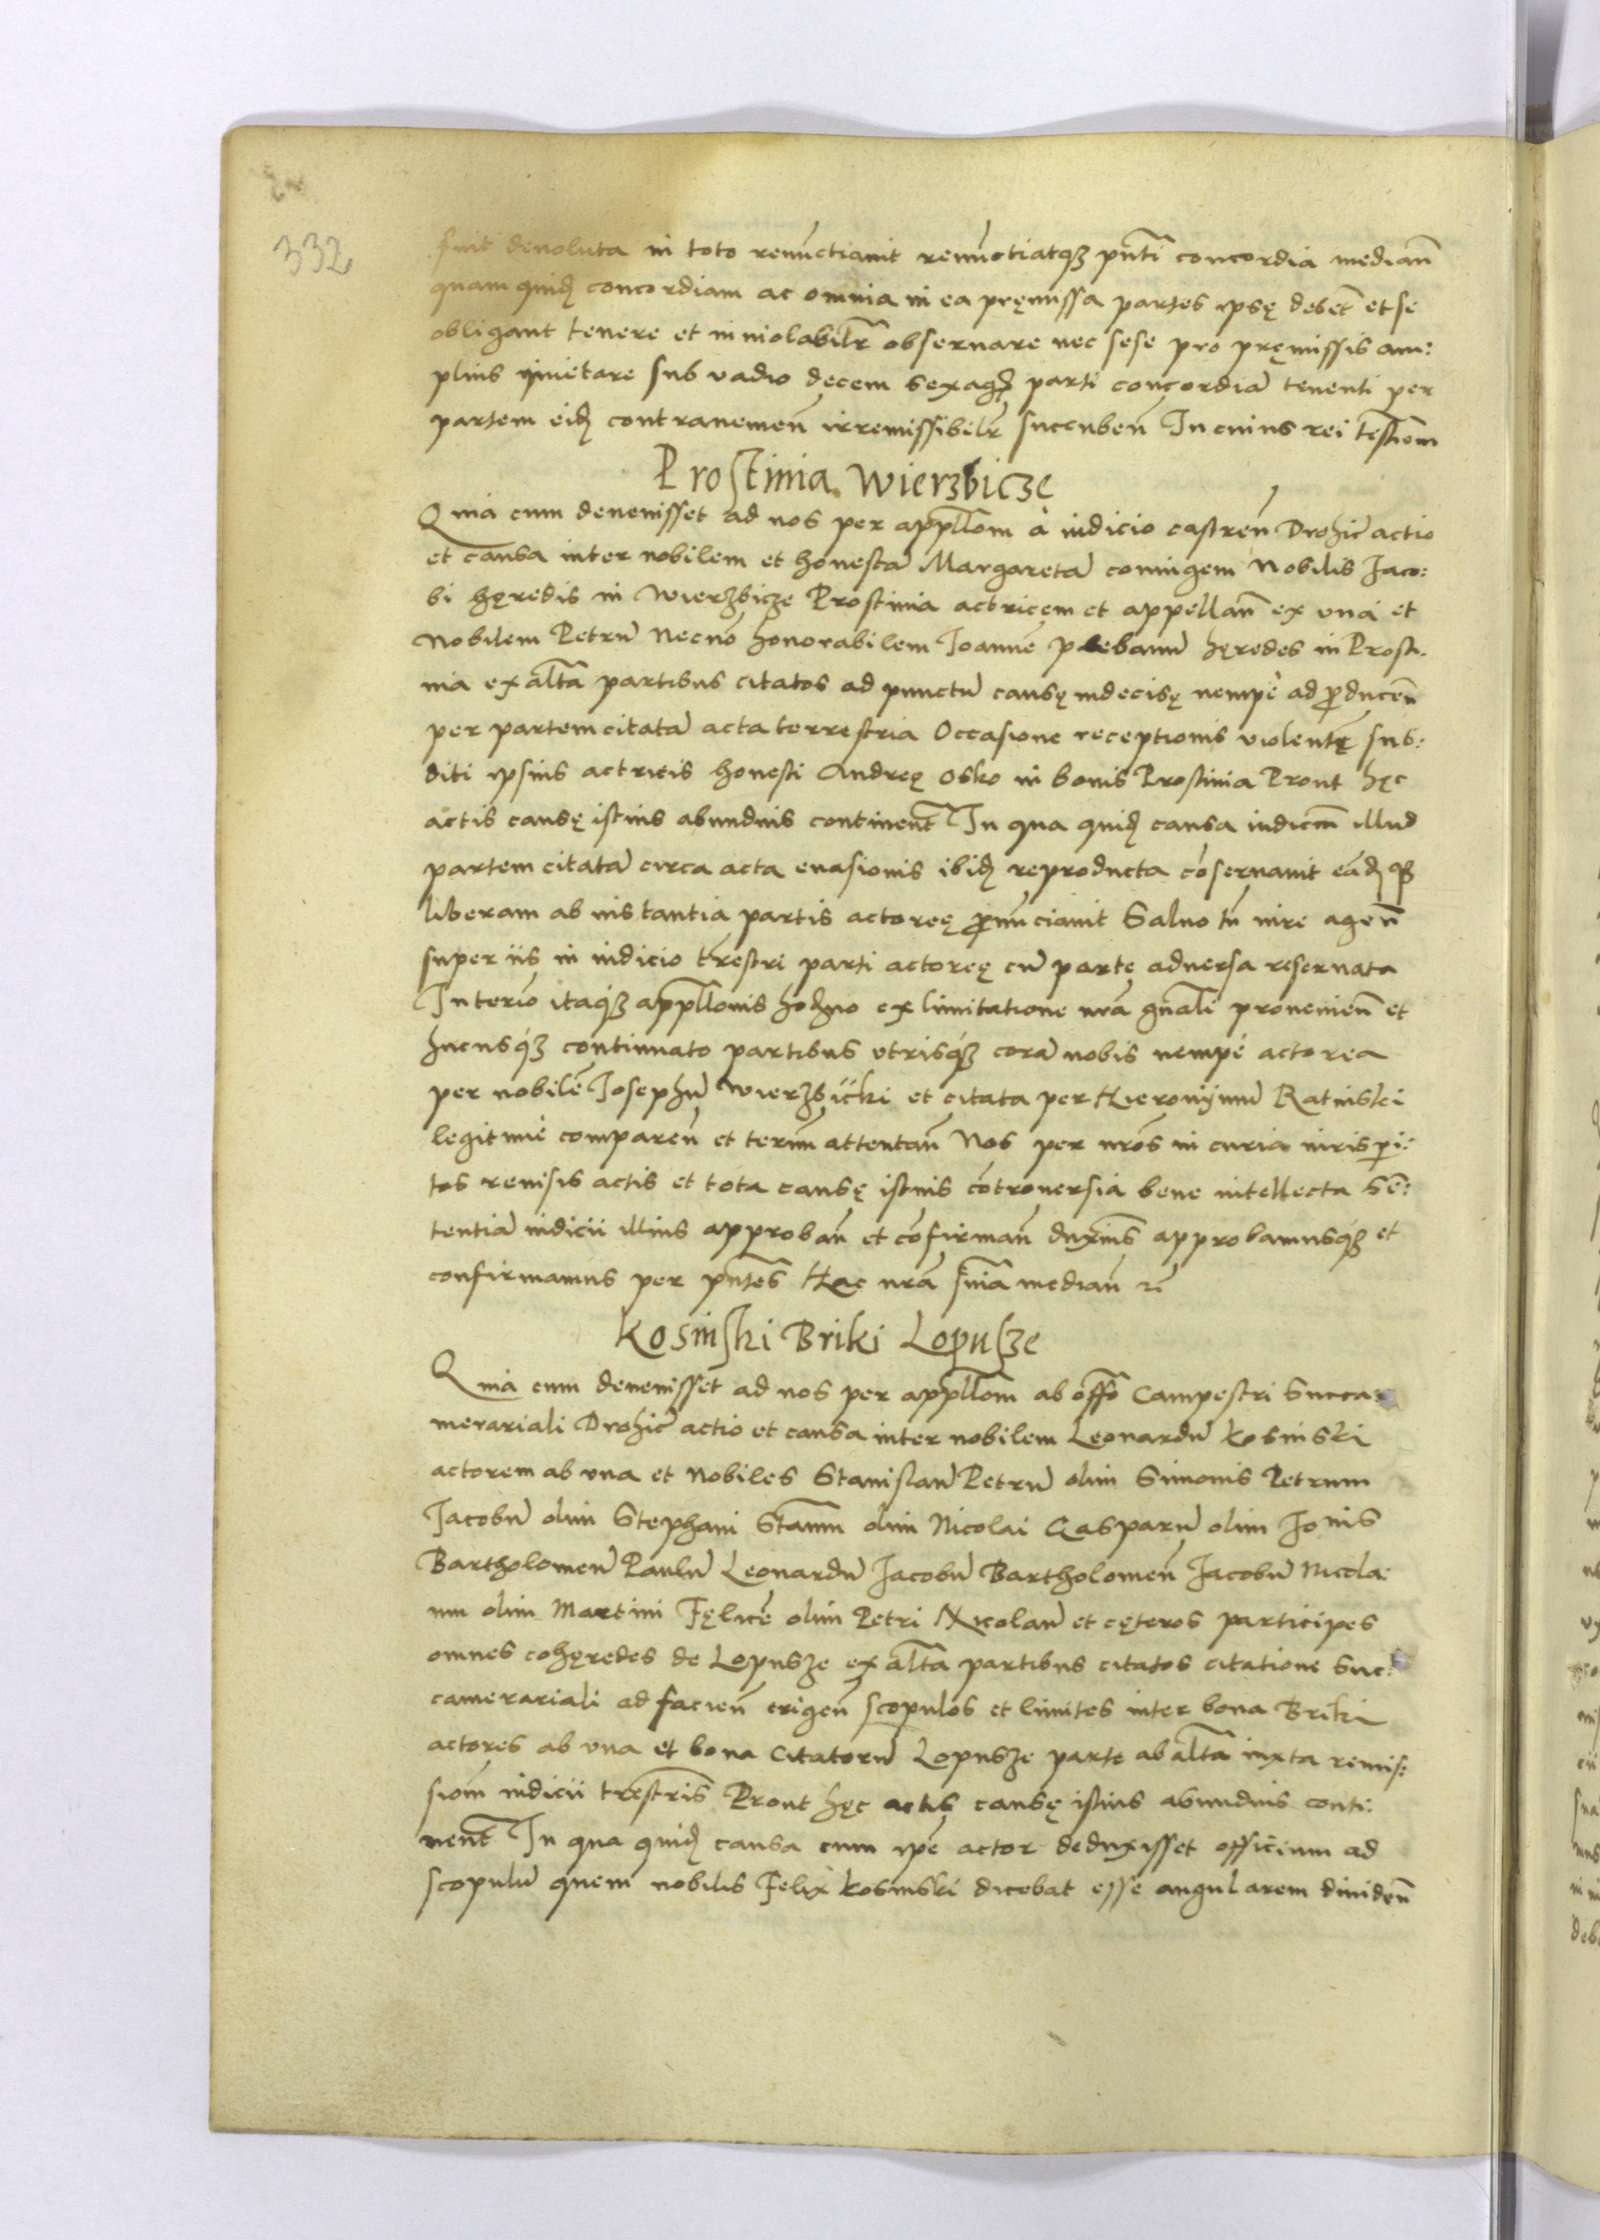 332
fuit deuoluta in toto renūctiauit renūctiatq3 pñti concordia median̄
quam quid̨ concordiam ac omnia in ea pręmissa partes ipsę debēt et se
obligant tenere et inuiolabilr̄ obseruare nec sese pro pręmissis am:
plius iquietare sub vadio decem sexag₃ parti concordiā tenenti per
partem eid̨ contrauenien̄ irremissibilr̄ succuben̄ In cuius rei testiom̄
Prostinia Wierzbicze
Quia cum deuenisset ad nos per appllom̄ à iudicio castren̄ Drohic̄ actio
et causa inter nobilem et honestā Margaretā coniugem Nobilis Jaco:
bi hęredis in Wierzbicze Prostinia actricem et appellan̄ ex vna et
Nobilem Petrū Necnō honorabilem Joannē plebanū hęredes in Prosti:
nia ex altā partibus citatos ad punctū causę indecisę nempè ad p̄ducen̄
per partem citatā acta terrestria Occasione receptionis violentę sub:
diti ipsius actricis honesti Andreę Osko in bonis Prostinia Prout hęc
actis causę istius abundius continent̄ In qua quid̨ causa iudiciū illud
partem citatā circa acta euasionis ibid̨ reproducta cōseruauit eād̨ q3
liberam ab instantia partis actoreę p̄nūciauit Saluo tn̄ iure agen̄
super iis in iudicio tr̄restri parti actoreę cū parte aduersa reseruata
In terīo itaq3 appllonis hod̨no ex limitatione nr̄a gn̄ali prouenien̄ et
hucusq3 continuato partibus vtrisq3 corā nobis nempè actorea
per nobilē Josephū Wierzbicki et citata per Hieronijmū Ratinski
legitimè comparen̄ et termū attentan̄ Nos per nr̄os in curia iuris p̄i:
tos reuisis actis et tota causę istius cōtrouersia bene intellecta Sē:
tentiā iudicii illius approban̄ et cōfirman̄ duxīus approbamusq3 et
confirmamus per pn̄tes Hac nr̄a sn̄ia median̄ rī
Kosinski Briki Lopusze
Quia cum deuenisset ad nos per appllom̄ ab offō Campestri Succa:
merariali Drohic̄ actio et causa inter nobilem Leonardū Kosinski
actorem ab vna et Nobiles Stanislaū Petrū olim Simonis Petrum
Jacobū olim Stephani Stanū olim Nicolai Casparū olim Jonis
Bartholomeū Paulū Leonardū Jacobū Bartholomeū Jacobū Nicola:
um olim Martini Fęlicē olim Petri Nicolaū et cęteros participes
omnes cohęredes de Lopusze ex altā partibus citatos citatione Suc:
camerariali ad facien̄ erigen̄ scopulos et limites inter bona Briki
actores ab vna et bona citatorū Lopusze parte ab altā iuxta remis:
siom̄ iudicii tr̄restris Prout hęc actis causę istius abundius conti:
nent̄ In qua quid̨ causa cum ip̄e actor deduxisset officium ad
scopulū quem nobilis Felix Kosinski dicebat esse angularem diuiden̄